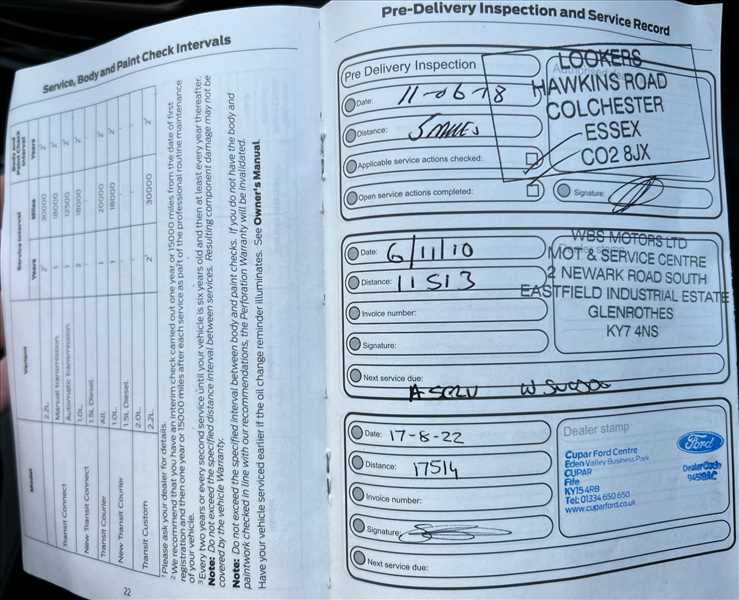 Service, Body and Paint Check Intervals
Model
Variant
Service Interval
Body and Paint Check Interval
Years
Miles
Years
2.2L
2
30000
2
Transit Connect
Manual transmission
1
18000
2
Automatic transmission
1
12500
2
New Transit Connect
1.0L
18000
2
1.5L Diesel
-
-
-
Transit Courier
All
1
20000
2
New Transit Courier
1.0L
1
18000
2
1.5L Diesel
-
-
-
Transit Custom
2.0L
-
-
-
2.2L
2
30000
2
1 Please ask your dealer for details.
2 We recommend that you have an interim check carried out one year or 15000 miles from the date of first
registration and then one year or 15000 miles after each service as part of the professional routine maintenance
of your vehicle.
3 Every two years or every second service until your vehicle is six years old and then at least every year thereafter.
Note: Do not exceed the specified distance interval between services. Resulting component damage may not be
covered by the vehicle Warranty.
Note: Do not exceed the specified interval between body and paint checks. If you do not have the body and
paintwork checked in line with our recommendations, the Perforation Warranty will be invalidated.
Have your vehicle serviced earlier if the oil change reminder illuminates. See Owner's Manual.
22
Pre-Delivery Inspection and Service Record
Pre Delivery Inspection
Date: 11-06-18
Distance: 5 MILES
Applicable service actions checked:
Open service actions completed:
Signature:
LOOKERS
HAWKINS ROAD
COLCHESTER
ESSEX
CO2 8JX
Date: 6/11/10
Distance: 11513
Invoice number:
Signature:
Next service due:
WBS MOTORS LTD
MOT & SERVICE CENTRE
2 NEWARK ROAD SOUTH
EASTFIELD INDUSTRIAL ESTATE
GLENROTHES
KY7 4NS
Date: 17-8-22
Distance: 17514
Invoice number:
Signature:
Next service due:
Dealer stamp
Cupar Ford Centre
Eden Valley Business Park
CUPAR
Fife
KY15 4RB
Tel: 01334 650 650
www.cuparford.co.uk
Ford
Dealer Code